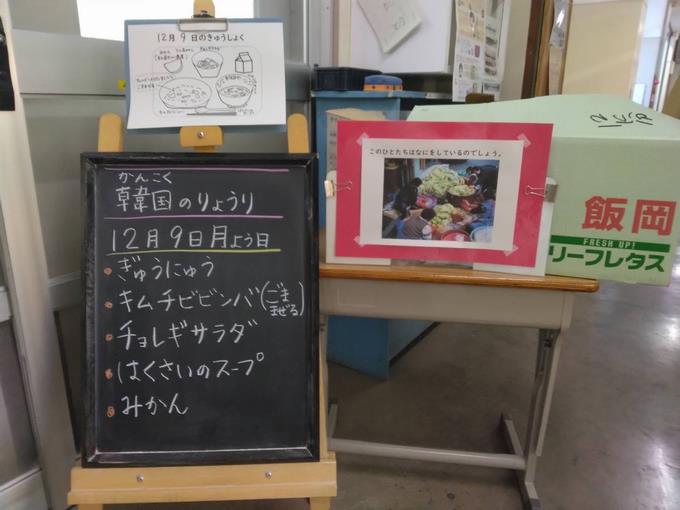 12月9日のきゅうしょく
かんこく
韓国のりょうり
12月9日月よう日
ぎゅうにゅう
キムチビビンバ(ごま まぜる)
チョレギサラダ
はくさいのスープ
みかん
このひとたちはなにをしているのでしょう。
飯岡
FRESH UP!
リーフレタス